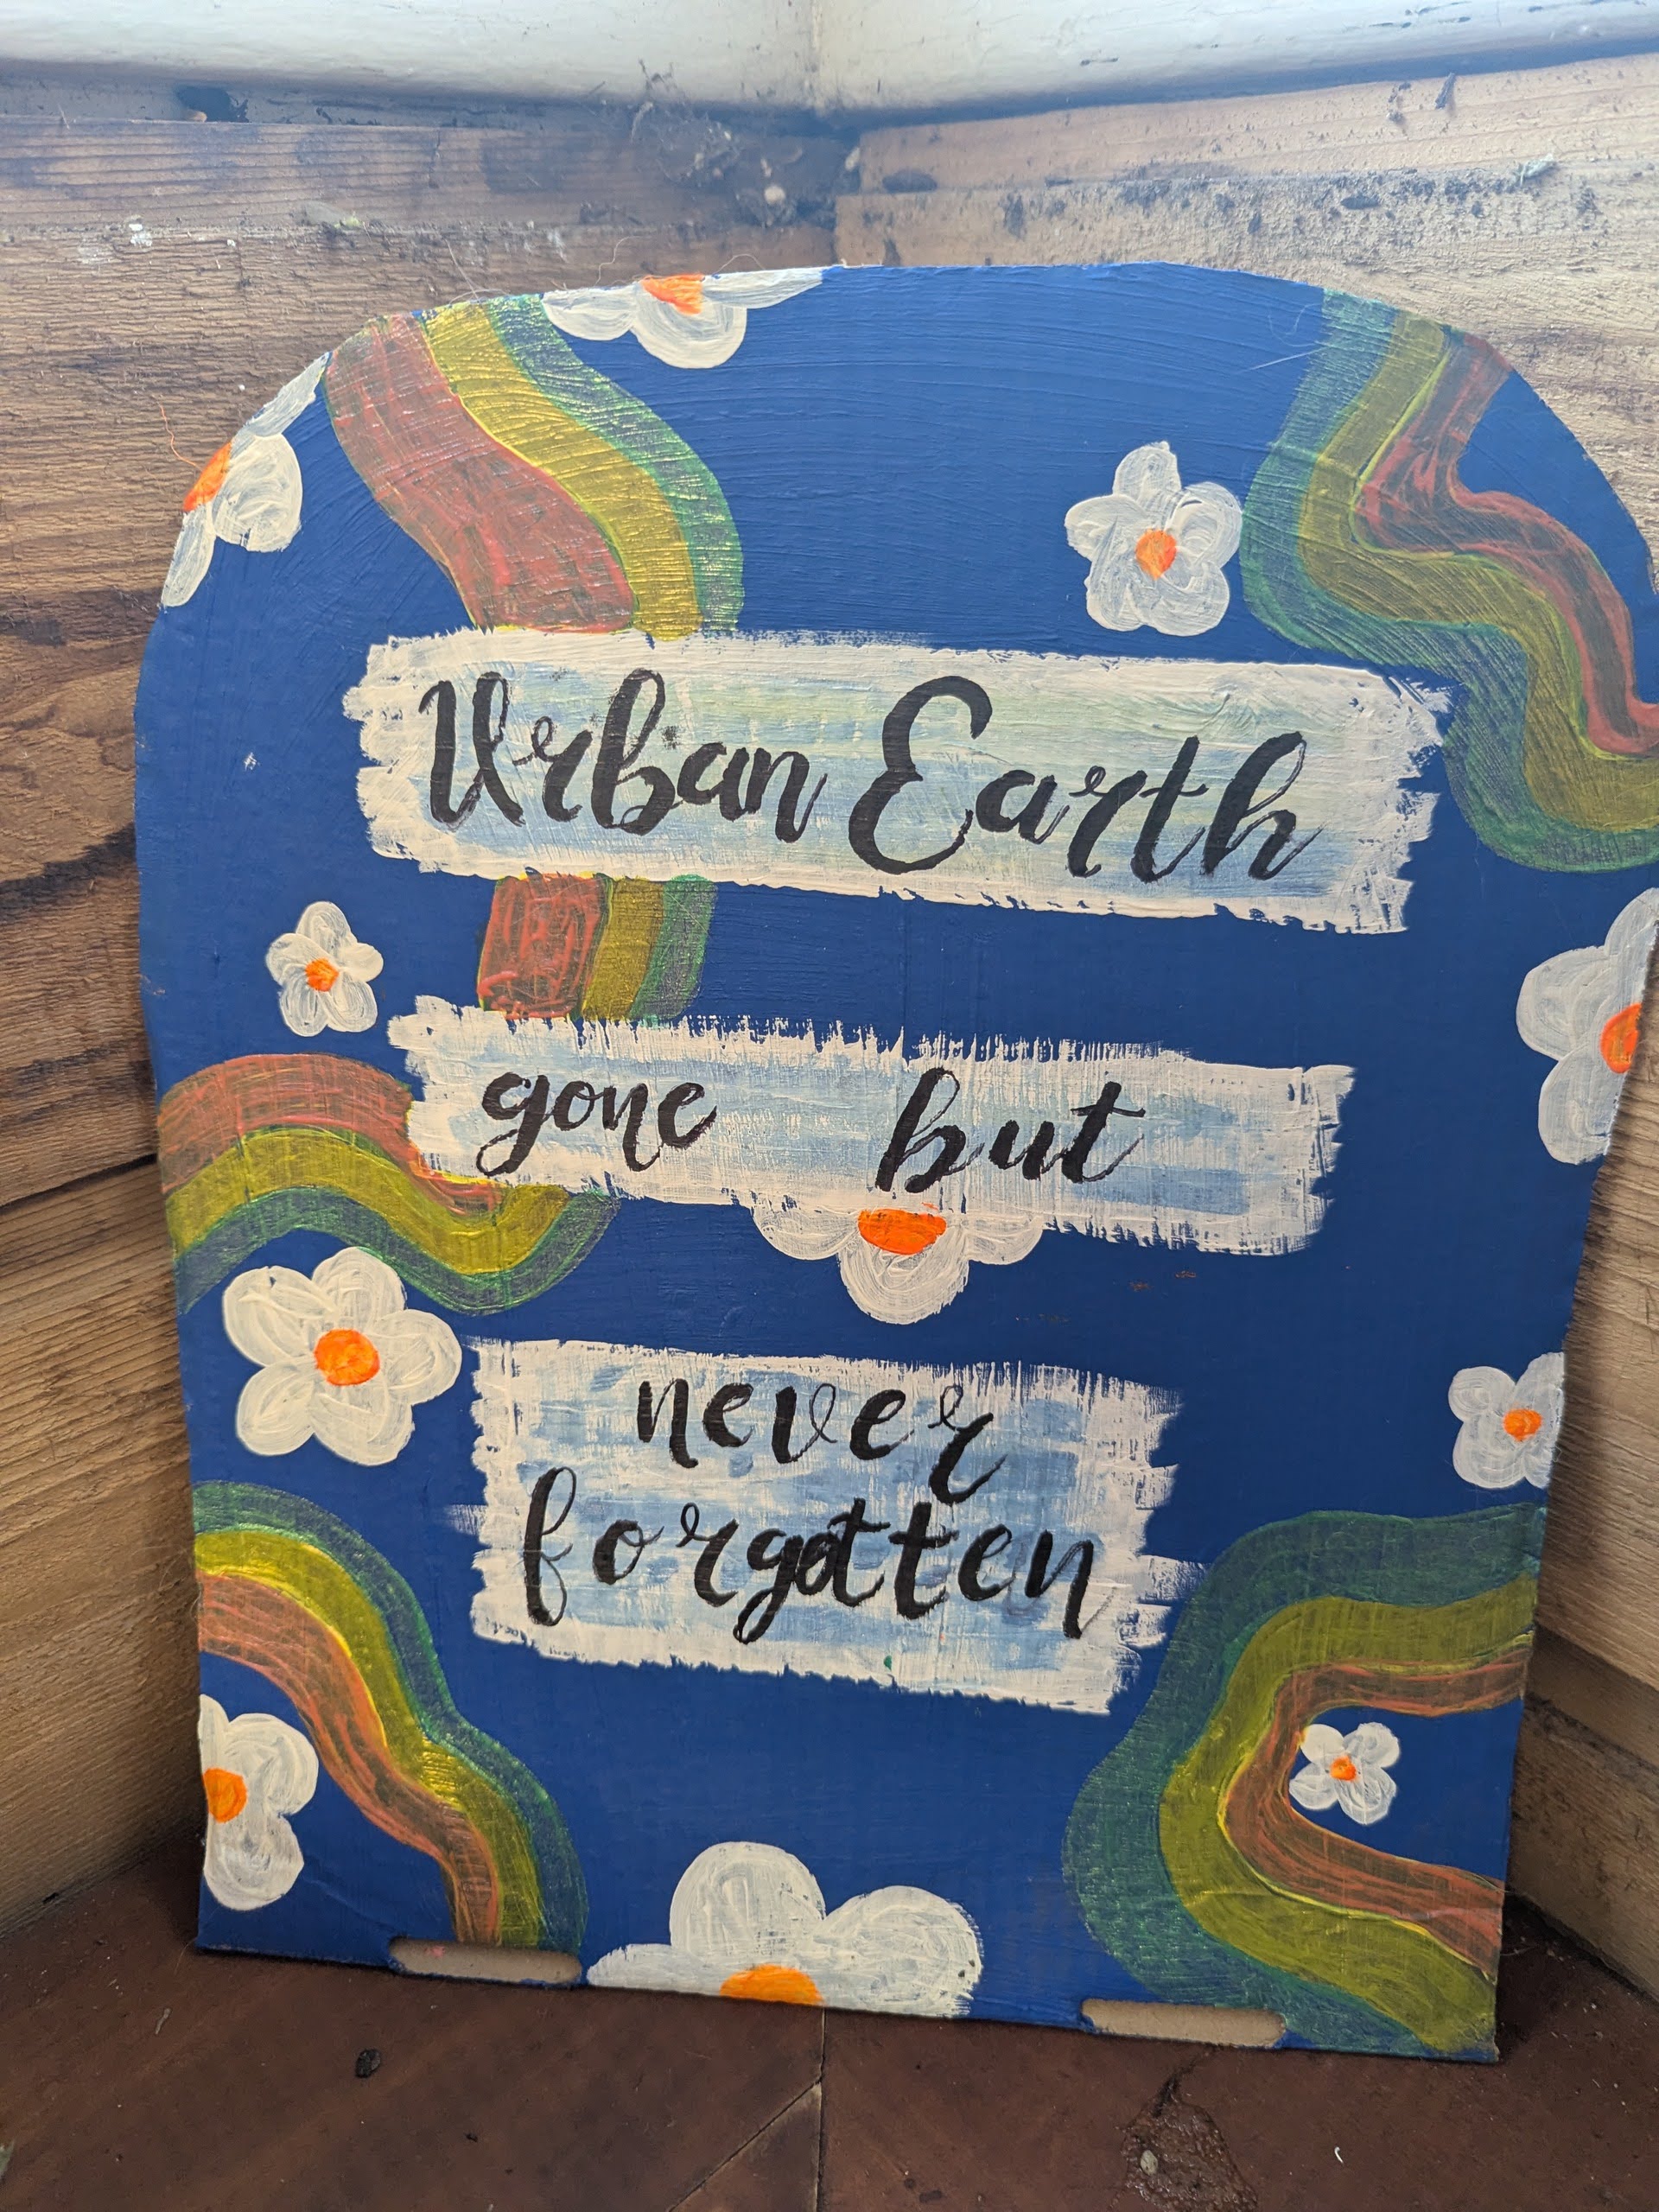 Urban Earth
gone but
never
forgotten